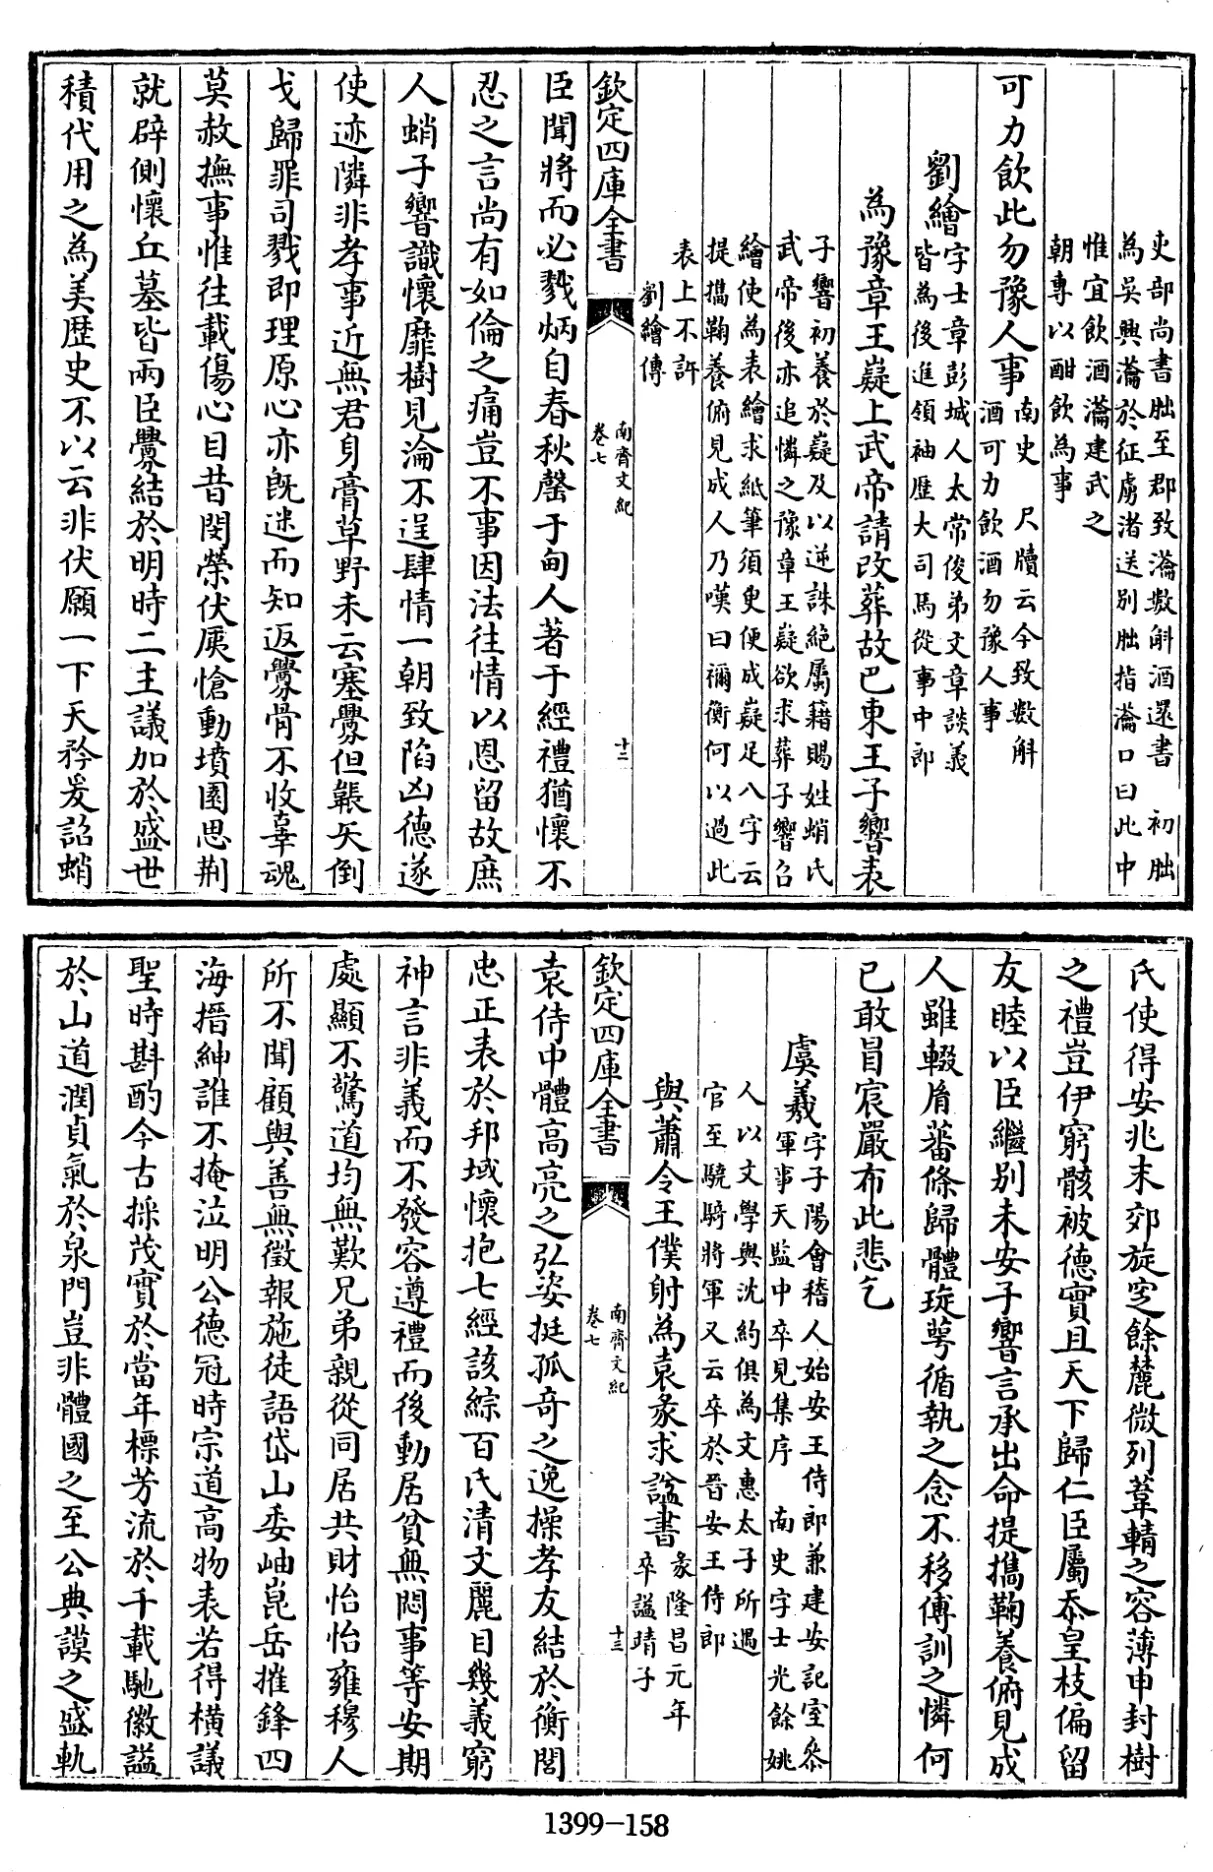 吏部尚書朏至郡致瀹數斛酒還書 初朏
為吳興瀹於征虜渚送別朏指瀹口曰此中
惟宜飲酒瀹建武之
朝專以酣飲為事
可力飲此勿豫人事 南史 尺牘云今致數斛
酒可力飲酒勿豫人事
劉繪 字士章彭城人太常俊弟文章談義
皆為後進領袖歷大司馬從事中郎
為豫章王嶷上武帝請改葬故巴東王子響表
子響初養於嶷及以逆誅絕屬籍賜姓蛸氏
武帝後亦追憐之豫章王嶷欲求葬子響召
繪使為表繪求紙筆須臾便成嶷足八字云
提攜鞠養俯見成人乃嘆曰禰衡何以過此
表上不許
劉繪傳
欽定四庫全書
南齊文紀
卷七
十二
臣聞將而必戮炳自春秋罄于甸人著于經禮猶懷不
忍之言尚有如倫之痛豈不事因法往情以恩留故庶
人蛸子響識懷靡樹見淪不逞肆情一朝致陷凶德遂
使迹隣非孝事近無君身膏草野未云塞釁但皷矢倒
戈歸罪司戮即理原心亦既迷而知返釁骨不收辜魂
莫赦撫事惟往載傷心目昔閔榮伏戾愴動墳園思荆
就辟側懷丘墓皆兩臣釁結於明時二主議加於盛世
積代用之為美歷史不以云非伏願一下天矜爰詔蛸
氏使得安兆末郊旋窆餘麓微列葦輤之容薄申封樹
之禮豈伊窮骸被德實且天下歸仁臣屬忝皇枝偏留
友睦以臣繼別未安子響言承出命提攜鞠養俯見成
人雖輟胤蕃條歸體琁萼循執之念不移傅訓之憐何
已敢冒宸嚴布此悲乞
虞羲 字子陽會稽人始安王侍郎兼建安記室叅
軍事天監中卒見集序 南史字士光餘姚
人以文學與沈約俱為文惠太子所遇
官至驍騎將軍又云卒於晉安王侍郎
與蕭令王僕射為袁彖求諡書 彖隆昌元年
卒諡靖子
欽定四庫全書
南齊文紀
卷七
十三
袁侍中體高亮之弘姿挺孤奇之逸操孝友結於衡閭
忠正表於邦域懷抱七經該綜百氏清文麗目幾義窮
神言非義而不發容遵禮而後動居貧無悶事等安期
處顯不驚道均無歎兄弟親從同居共財怡怡雍穆人
所不聞顧與善無徵報施徒語岱山委岫崑岳摧鋒四
海搢紳誰不掩泣明公德冠時宗道高物表若得橫議
聖時斟酌今古採茂實於當年標芳流於千載馳徽謚
於山道潤貞氣於泉門豈非體國之至公典謨之盛軌
1399-158